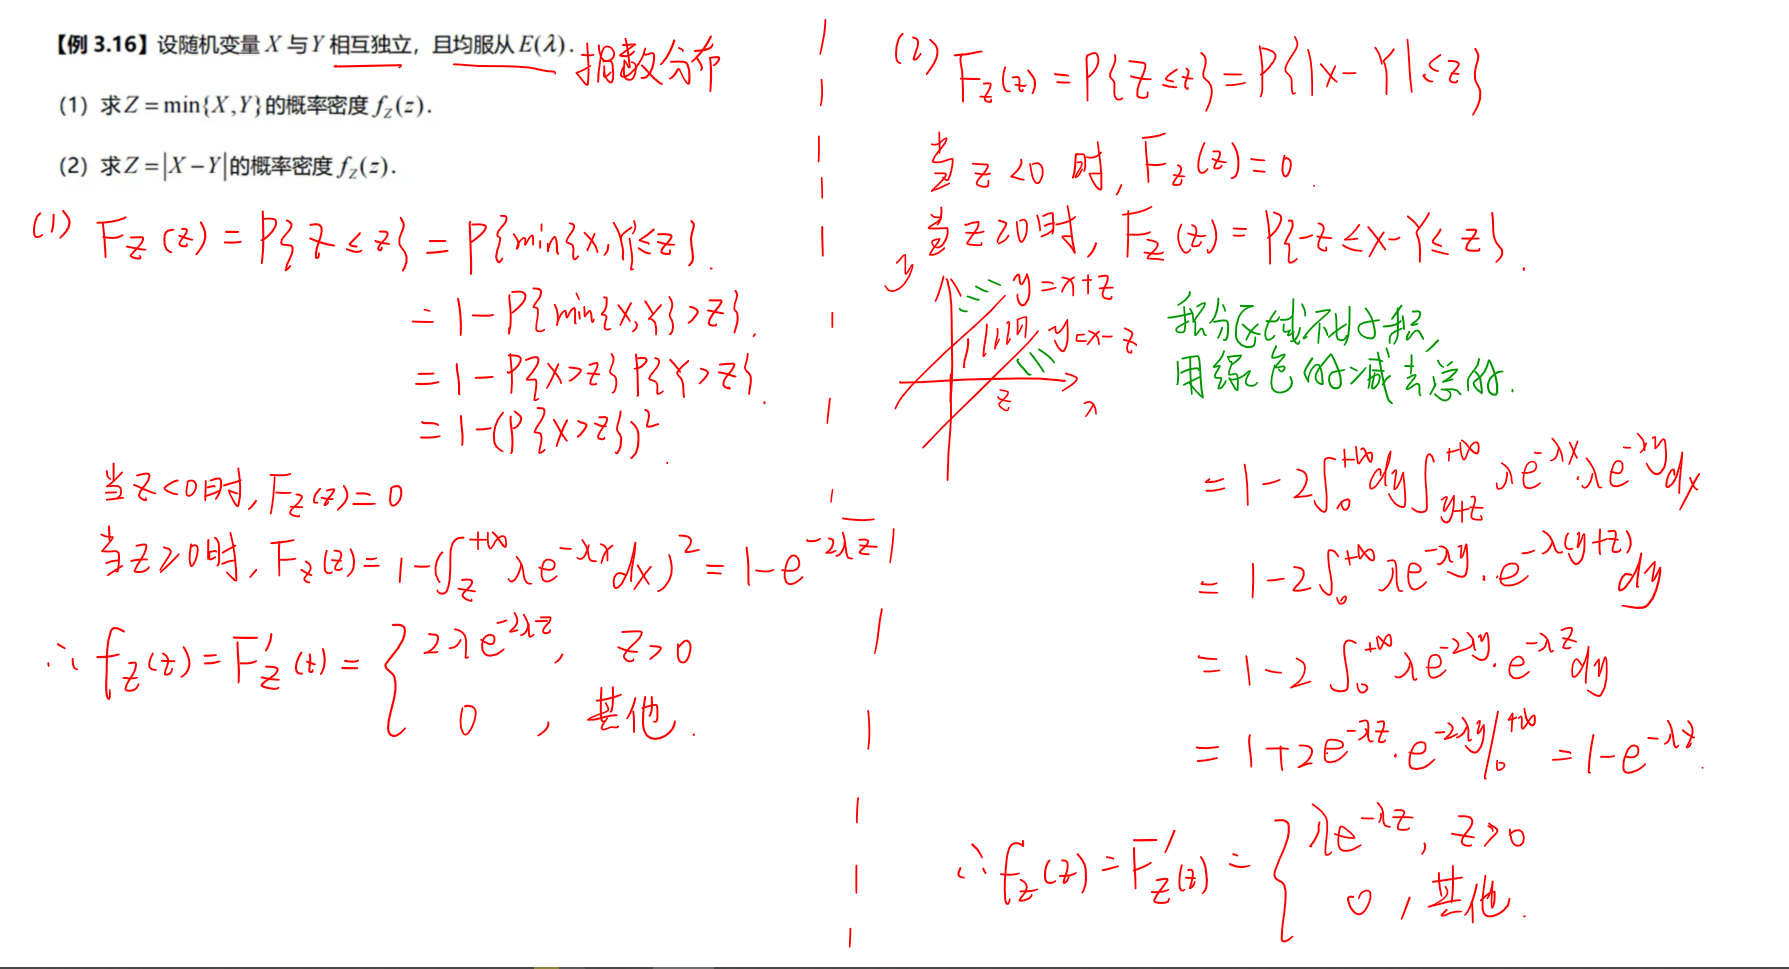 【例 3.16】设随机变量 X 与 Y 相互独立，且均服从 E(λ). 指数分布
(1) 求 Z = min{X,Y} 的概率密度 f_Z(z).
(2) 求 Z = |X − Y| 的概率密度 f_Z(z).
(1) F_Z(z) = P{Z ≤ z} = P{min{X,Y} ≤ z}.
= 1 − P{min{X,Y} > z}.
= 1 − P{X > z} P{Y > z}.
= 1 − (P{X > z})².
当 z < 0 时, F_Z(z) = 0
当 z ≥ 0 时, F_Z(z) = 1 − (∫_z^{+∞} λe^{−λx} dx)² = 1 − e^{−2λz}
∴ f_Z(z) = F'_Z(z) = { 2λe^{−2λz}, z > 0
0 , 其他.
(2) F_Z(z) = P{Z ≤ z} = P{|X − Y| ≤ z}
当 z < 0 时, F_Z(z) = 0.
当 z ≥ 0 时, F_Z(z) = P{−z ≤ X − Y ≤ z}.
y
y = x + z
y = x − z
z
x
积分区域不好积,
用绿色的减去总的.
= 1 − 2∫_0^{+∞} dy ∫_{y+z}^{+∞} λe^{−λx} · λe^{−λy} dx
= 1 − 2∫_0^{+∞} λe^{−λy} · e^{−λ(y+z)} dy
= 1 − 2∫_0^{+∞} λe^{−2λy} · e^{−λz} dy
= 1 + 2e^{−λz} · e^{−2λy} |_0^{+∞} = 1 − e^{−λz}.
∴ f_Z(z) = F'_Z(z) = { λe^{−λz}, z > 0
0 , 其他.